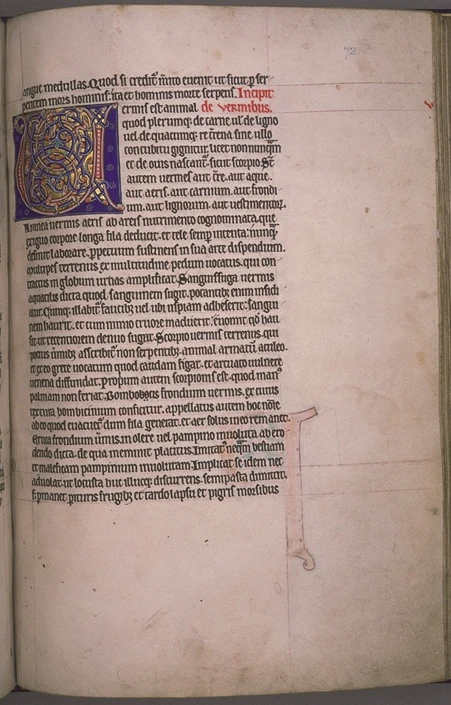 72
angit medullas. Quod si creditur nimio evenit ut sicut per ser
pentem mors hominis: ita et hominis morte serpens. Incipit
ermis est animal de vermibus.
quod plerumque de carne. ul' de ligno
uel de quacumque re terrena sine ullo
concubitu gignitur. licet nonnunquam
et de ouis nascantur. sicut scorpio. St
autem uermes aut terre. aut aque.
aut aeris. aut carnium. aut frondi
um. aut lignorum. aut uestimentorum.
Aranea uermis aeris ab aeris nutrimento cognominata. que
exiguo corpore longa fila deducit. et tele semper intenta: nunquam
desinit laborare. perpetuum sustinens in sua arte dispendium.
multipes terrenus ex multitudine pedum uocatus. qui con
tractus in globum
Sanguissuga uermis
aquatilis dicta quod sanguinem sugit. potantibus enim insidi
atur. Cumque illabitur faucibus uel ubi uspiam adhescit: sangui
nem haurit. et cum nimio cruore maduerit. euomit quod hau
sit ut recentiorem denuo sugat. Scorpio uermis terrenus. qui
pocius uermibus asscribitur non serpentibus. animal armatum aculeo.
et ex eo grece uocatum quod caudam figat. et arcuato uulnere
uenena diffundat. Proprium autem scorpionis est. quod manus
palmam non feriat. Bombocos frondium uermis. ex cuius
textura bombicinium conficitur. appellatus autem hoc nomine
ab eo quod euacuetur dum fila generat. et aer solus in eo remaneat.
Eruca frondium uermis in olere uel pampino inuoluta ab ero
dendo dicta. de qua meminit plautus. Imitatur nequam bestiam
et maleficam pampinum inuolutam. Implicat se idem nec
aduolat ut locusta huc illucque discurrens. semipasta dimittit.
set permanet perituris frugibus. et tardo lapsu et pigris morsibus